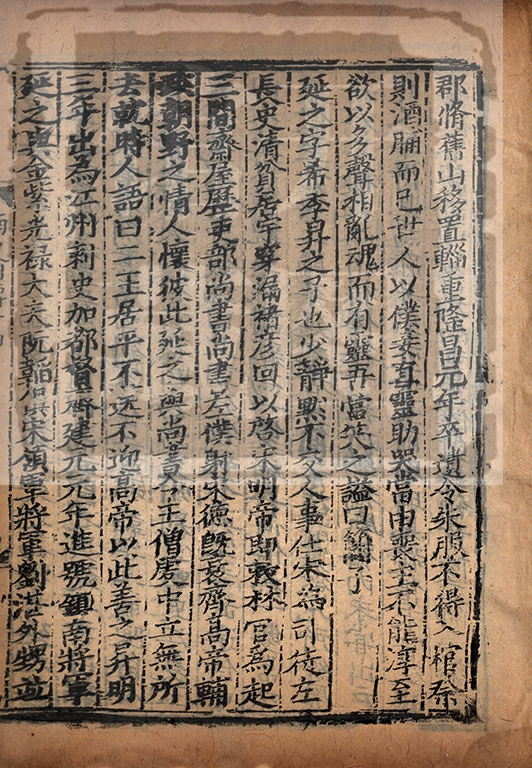 郡脩舊山移置輜重隆昌元年卒遺令朱服不得入棺祭
則酒脯而已世人以僕妾直靈助哭當由喪主不能淳至
欲以多聲相亂魂而有靈吾當笑之謚曰簡子
延之字希季昇之子也少靜默不交人事仕宋為司徒左
長史清貧居宇穿漏褚彥回以啓宋明帝即敕材官爲起
三間齋屋歷吏部尚書尚書左僕射宋德旣衰齊高帝輔
政朝野之情人懷彼此延之與尚書令王僧虔中立無所
去就時人語曰二王居平不送不迎高帝以此善之昇明
三年出為江州刺史加都督齊建元元年進號鎮南將軍
延之與金紫光祿大夫阮韜俱宋領軍將軍劉湛外甥並